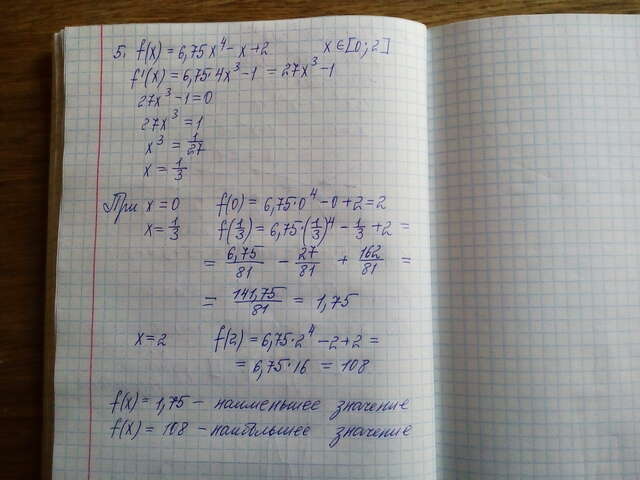 5. f(x) = 6,75x⁴ - x + 2 x ∈ [0; 2]
f'(x) = 6,75·4x³ - 1 = 27x³ - 1
27x³ - 1 = 0
27x³ = 1
x³ = 1/27
x = 1/3
При x = 0 f(0) = 6,75·0⁴ - 0 + 2 = 2
x = 1/3 f(1/3) = 6,75·(1/3)⁴ - 1/3 + 2 =
= 6,75/81 - 27/81 + 162/81 =
= 141,75/81 = 1,75
x = 2 f(2) = 6,75·2⁴ - 2 + 2 =
= 6,75·16 = 108
f(x) = 1,75 - наименьшее значение
f(x) = 108 - наибольшее значение